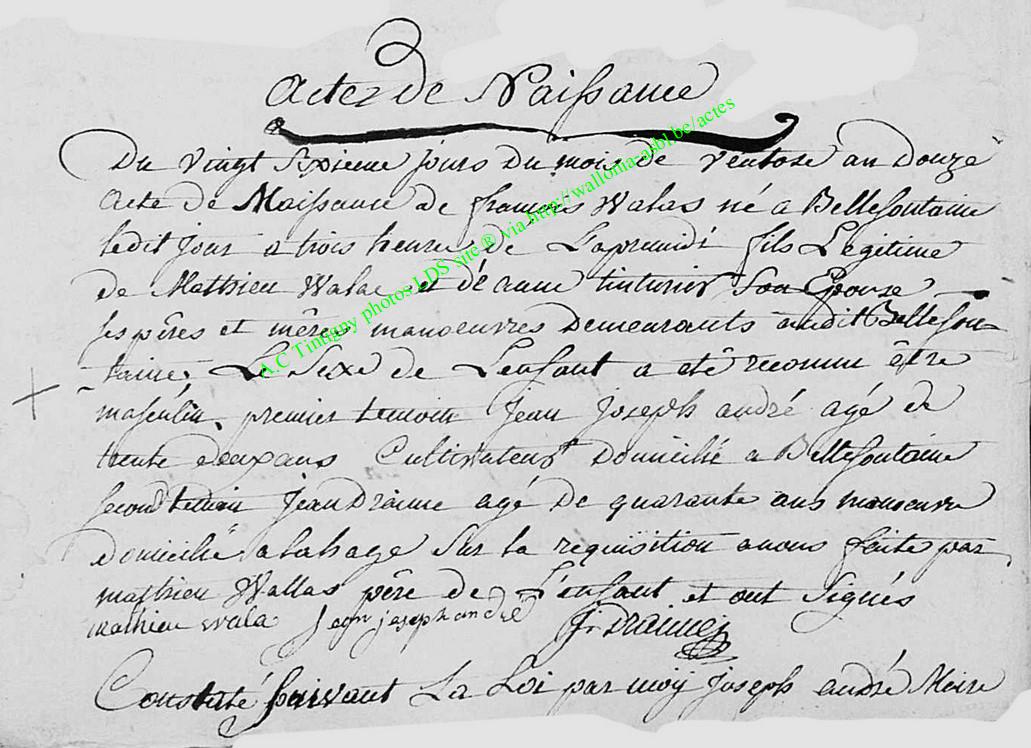 Actes de Naissance
Du vingt Sixieme jours Du mois de ventose an Douze
Acte De Naissance de françois Walas né a Bellefontaine
ledit jour a trois heures de Lapremidi fils Legitime
de Matthieu Walac et dé anne tinturier Son Epouse
ses pêres et mêres manoeuvres demeurants audit Bellefon-
taine. Le Sexe de L'enfant a été reconnu être
masculin. premier temoin Jean Joseph andré agé de
trente deux ans Cultivateur Domicilié a Bellefontaine
second temoin Jean Drainne agé De quarante ans manoeuvre
Domicilié a lahage Sur la requisition a nous faite par
mathieu Wallas pêre de L'enfant et ont Signés
mathieu wala Jean joseph andré J. Drainne
Constaté Suivant La Loi par moy Joseph andré Meire
A.C Tintigny photos LDS site ® via http://wallonia-asbl.be/actes